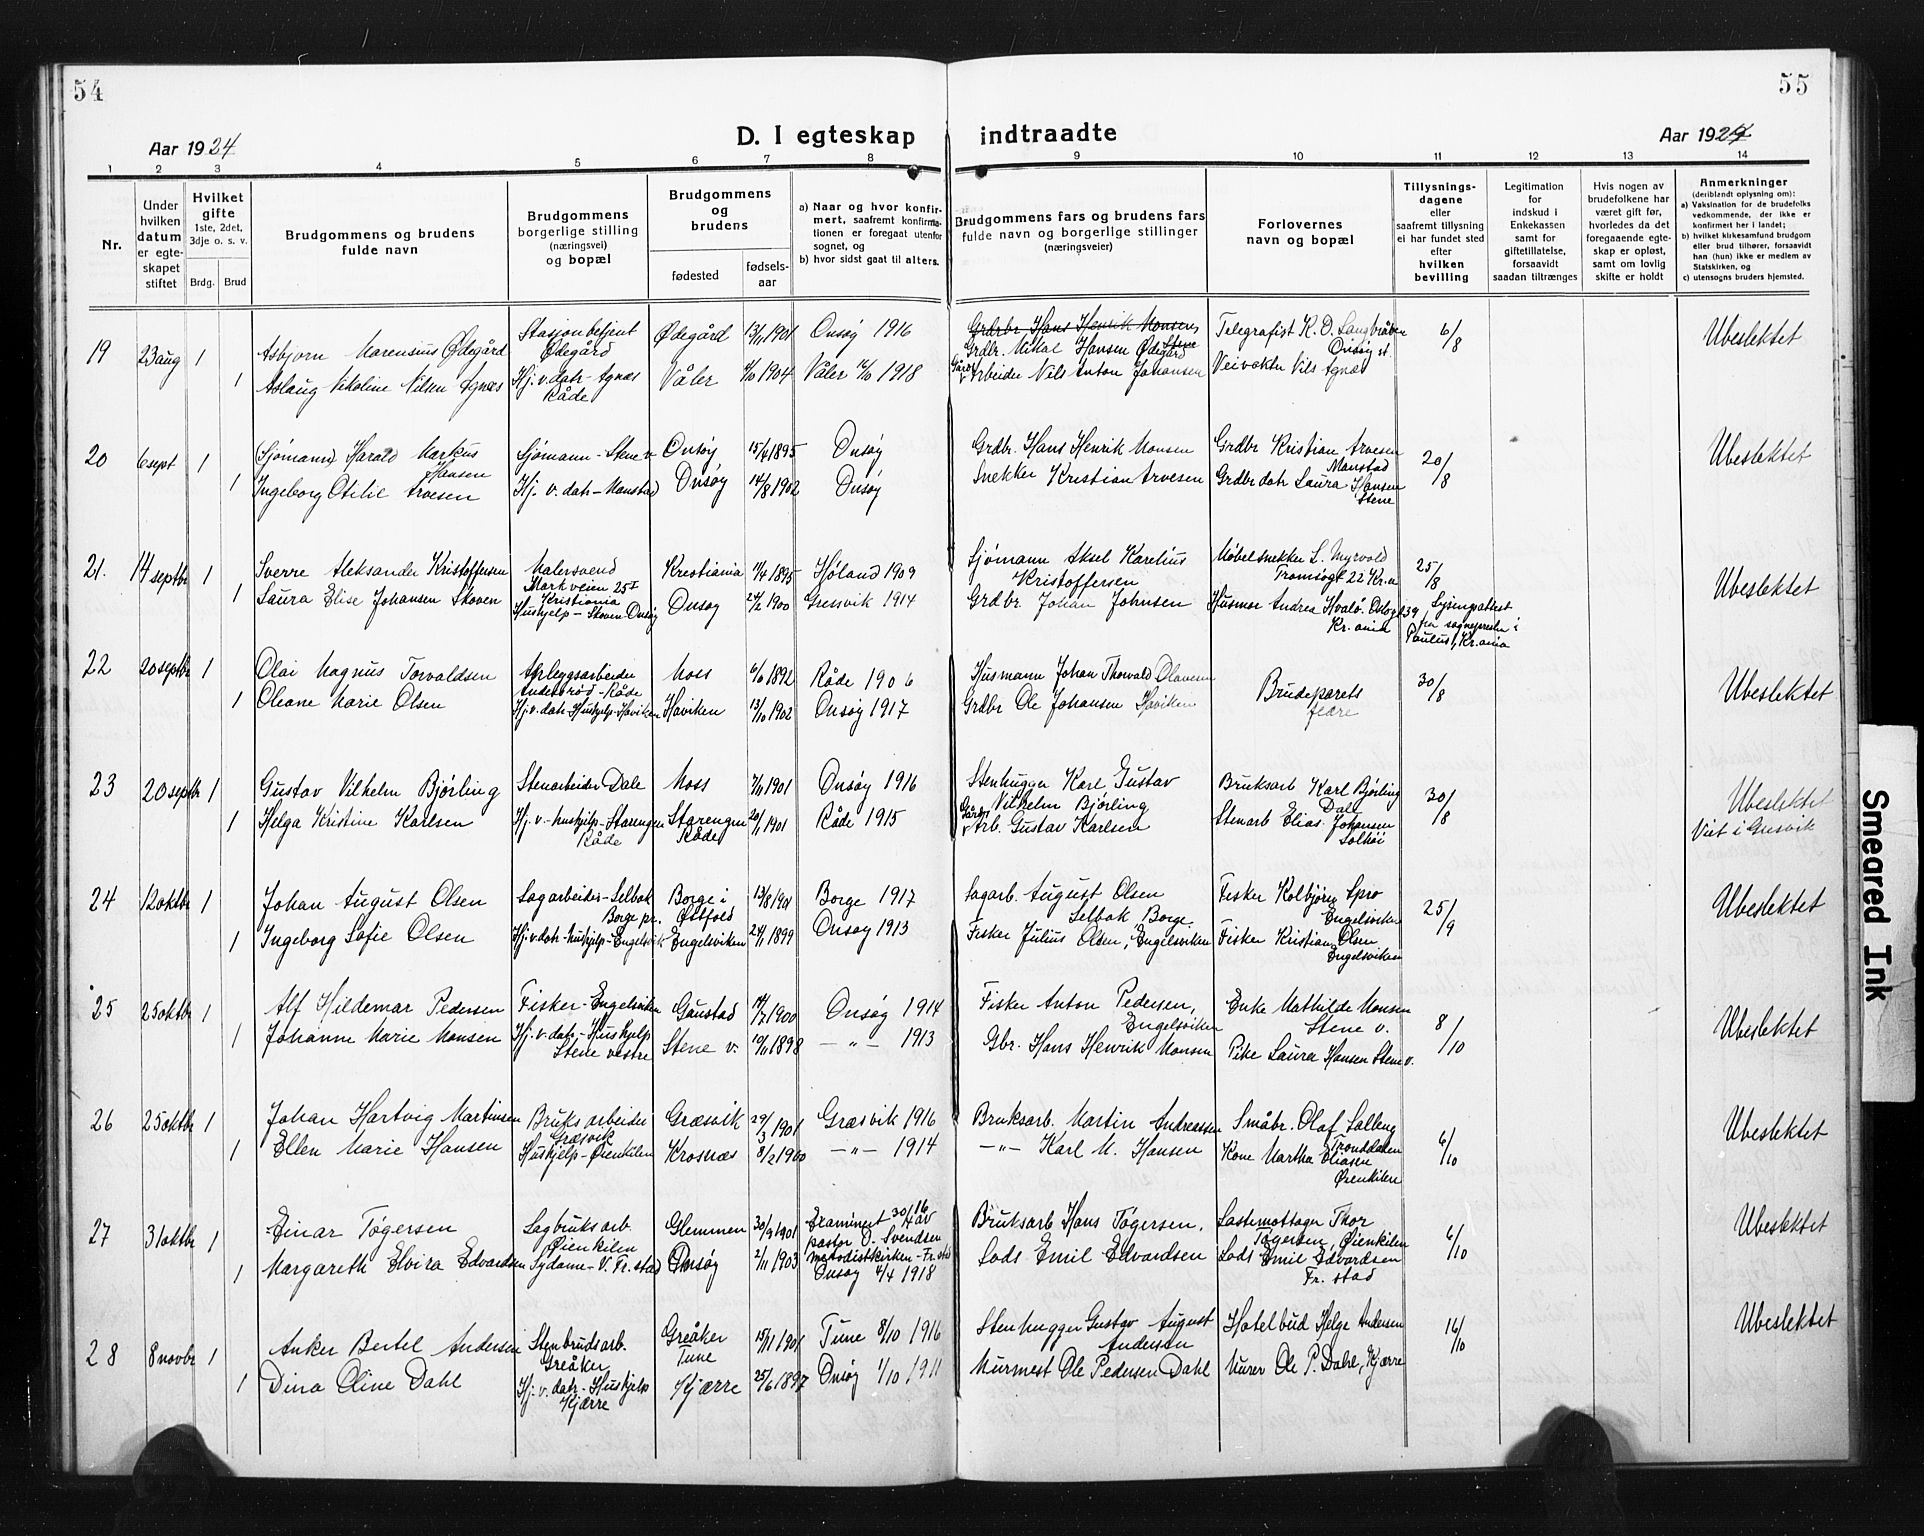 54
55
Aar 1924
D. I egteskap indtraadte
Aar 1924
1 2 3 4 5 6 7 8 9 10 11 12 13 14
Nr.
Under hvilken datum er egteskapet stiftet
Hvilket gifte 1ste, 2det, 3dje o. s. v.
Brdg. Brud
Brudgommens og brudens fulde navn
Brudgommens borgerlige stilling (næringsvei) og bopæl
Brudgommens og brudens
fødested
fødselsaar
a) Naar og hvor konfirmert, saafremt konfirmationen er foregaat utenfor sognet, og
b) hvor sidst gaat til alters.
Brudgommens fars og brudens fars fulde navn og borgerlige stillinger (næringsveier)
Forlovernes navn og bopæl
Tillysningsdagene eller saafremt tillysning ei har fundet sted efter hvilken bevilling
Legitimation for indskud i Enkekassen samt for giftetillatelse, forsaavidt saadan tiltrænges
Hvis nogen av brudefolkene har været gift før, hvorledes da det foregaaende egteskap er opløst, samt om lovlig skifte er holdt
Anmerkninger (deriblandt oplysning om):
a) Vaksination for de brudefolks vedkommende, der ikke er konfirmert her i landet;
b) hvilket kirkesamfund brudgom eller brud tilhører, forsaavidt han (hun) ikke er medlem av Statskirken, og
c) utensogns bruders hjemsted.
19 23 aug 1 Asbjørn Marensius Ødegård Stasjonbetjent Ødegård Ødegård 13/11 1901 Onsøy 1916 Grdbr. Hans Henrik Monsen Stene Grdbr. Mikal Hansen Ødegård Telegrafist K. O. Langbråten Onsøy st. 6/8 Ubeslektet
1 Aslaug Nikoline Nilsen Agnæs Hj. v. datr Agnæs Råde Våler 1904 Våler 1918 Gårdr Arbeider Nils Anton Johansen Veivokter Nils Agnæs
20 6 sept 1 (Sjømann) Harald Markus Hansen Sjømann - Stene v. Onsøy 15/4 1895 Onsøy Grdbr. Hans Henrik Monsen Grdbr Kristian Arvesen Monstad 20/8 Ubeslektet
1 Ingeborg Otilie Arvesen Hj. v. datr - Monstad Onsøy 14/8 1902 Onsøy Snekker Kristian Arvesen Grdbr datr Laura Hansen Stene
21. 14 septbr 1 Sverre Aleksander Kristoffersen Malersvend Markveien 25 I Kristiania Kristiania 11/4 1895 Høland 1909 Sjømann Aksel Karelius Kristoffersen Møbelsnekker L. Myrvold Tromsøgt 22 Kr.a 25/8 Ubeslektet
1 Laura Elise Johansen Skoven Hushjelp - Skoven Onsøy Onsøy 24/2 1900 Gressvik 1914 Grdbr. Johan Johnsen Husmor Andrea Hvalø. Oslogt 39 Kr.ania Lysingsattest fra sognepresten i Paulus, Kr.ania
22 20 septbr 1 Olai Magnus Torvaldsen Anleggsarbeider - Råde Moss 6/6 1892 Råde 1906 Husmann Johan Thorvald Olavesen Brudeparets fedre 30/8 Ubeslektet
1 Oleane Marie Olsen Hj. v. datr - Hushjelp - Haviken Haviken 13/10 1902 Onsøy 1917 Grdbr Ole Johansen Haviken
23 20 septbr 1 Gustav Vilhelm Bjørling Stenarbeider Dale Moss 7/11 1901 Onsøy 1916 Stenhugger Karl Gustav Vilhelm Bjørling Bruksarb Karl Bjørling Dale 30/8 Ubeslektet
1 Helga Kristine Karlsen Hj. v. - hushjelp - Starengen Råde Starengen Råde 20/1 1901 Råde 1915 Gårdbr Arb. Gustav Karlsen Stenarb Elias Johansen Solhøi Viet i Gresvik
24 12 oktbr 1 Johan August Olsen Sagarbeider - Selbak Borge pr. Borge i Østfold 13/8 1901 Borge 1917 Sagarb. August Olsen Selbak Borge Fisker Kolbjørn Spro Engelsviken 25/9 Ubeslektet
1 Ingeborg Sofie Olsen Hj. v. datr - hushjelp - Engelsvik Engelsviken 24/11 1899 Onsøy 1913 Fisker Julius Olsen, Engelsviken Fisker Kristian Olsen Engelsviken
25 25 oktbr 1 Alf Hildemar Pedersen Fisker - Engelsviken Gaustad 14/7 1900 Onsøy 1914 Fisker Anton Pedersen, Engelsviken Enke Mathilde Monsen Stene v. 8/10 Ubeslektet
1 Johanne Marie Monsen Hj. v. datr, - Hushjelp Stene vestre Stene v. 10/11 1898 — „ — 1913 Gbr. Hans Henrik Monsen Pike Laura Hansen Stene v.
26 25 oktbr 1 Johan Hartvig Martinsen Bruks arbeider Græsvik Græsvik 29/3 1901 Græsvik 1916 Bruksarb. Martin Andreassen Småbr. Olaf Salleng Tronddalen 6/10 Ubeslektet
1 Ellen Marie Hansen Hushjelp - Ørenkilen Krosnæs 8/2 1900 — „ — 1914 — „ — Karl M. Hansen Kone Martha Eliasen Ørenkilen
27 31 oktbr 1 Einar Tøgersen Sagbruksarb. Øienkilen Glemmen 30/9 1901 Examinert 30/4 16 av pastor O. Svendsen metodistkirken - Fr.stad Bruksarb Hans Tøgersen. Lastemottager Thor Tøgersen, Øienkilen 6/10 Ubeslektet
1 Margareth Elvira Edvardsen Sydame - V. Fr.stad Onsøy 2/11 1903 Onsøy 4/4 1918 Lods Emil Edvardsen Lods Emil Edvardsen Fr. stad
28 8 novbr 1 Anker Bertel Andersen Stenbrudsarb. Greåker Greåker Tune 15/1 1901 Tune 8/10 1916 Stenhugger Gustav August Andersen Hotelbud Helge Andersen 16/10 Ubeslektet
1 Dina Oline Dahl Hj. v. datr - Hushjelp Kjærre Kjærre 25/6 1897 Onsøy 1/10 1911 Murmest Ole Pedersen Dahl Murer Ole P. Dahl, Kjærre
Smeared Ink